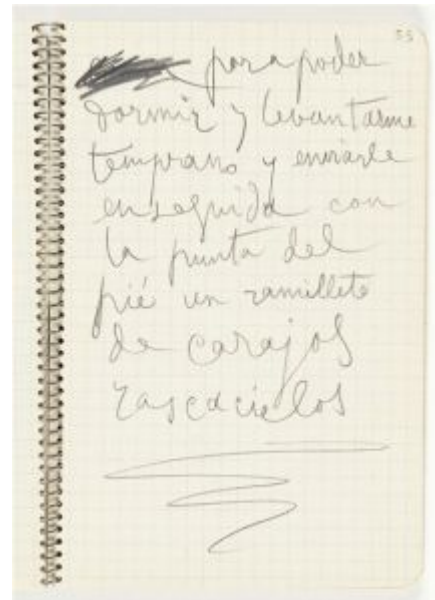 55
para poder
dormir y levantarme
temprano y enviarle
enseguida con
la punta del
pié un ramillete
de carajos
rascacielos